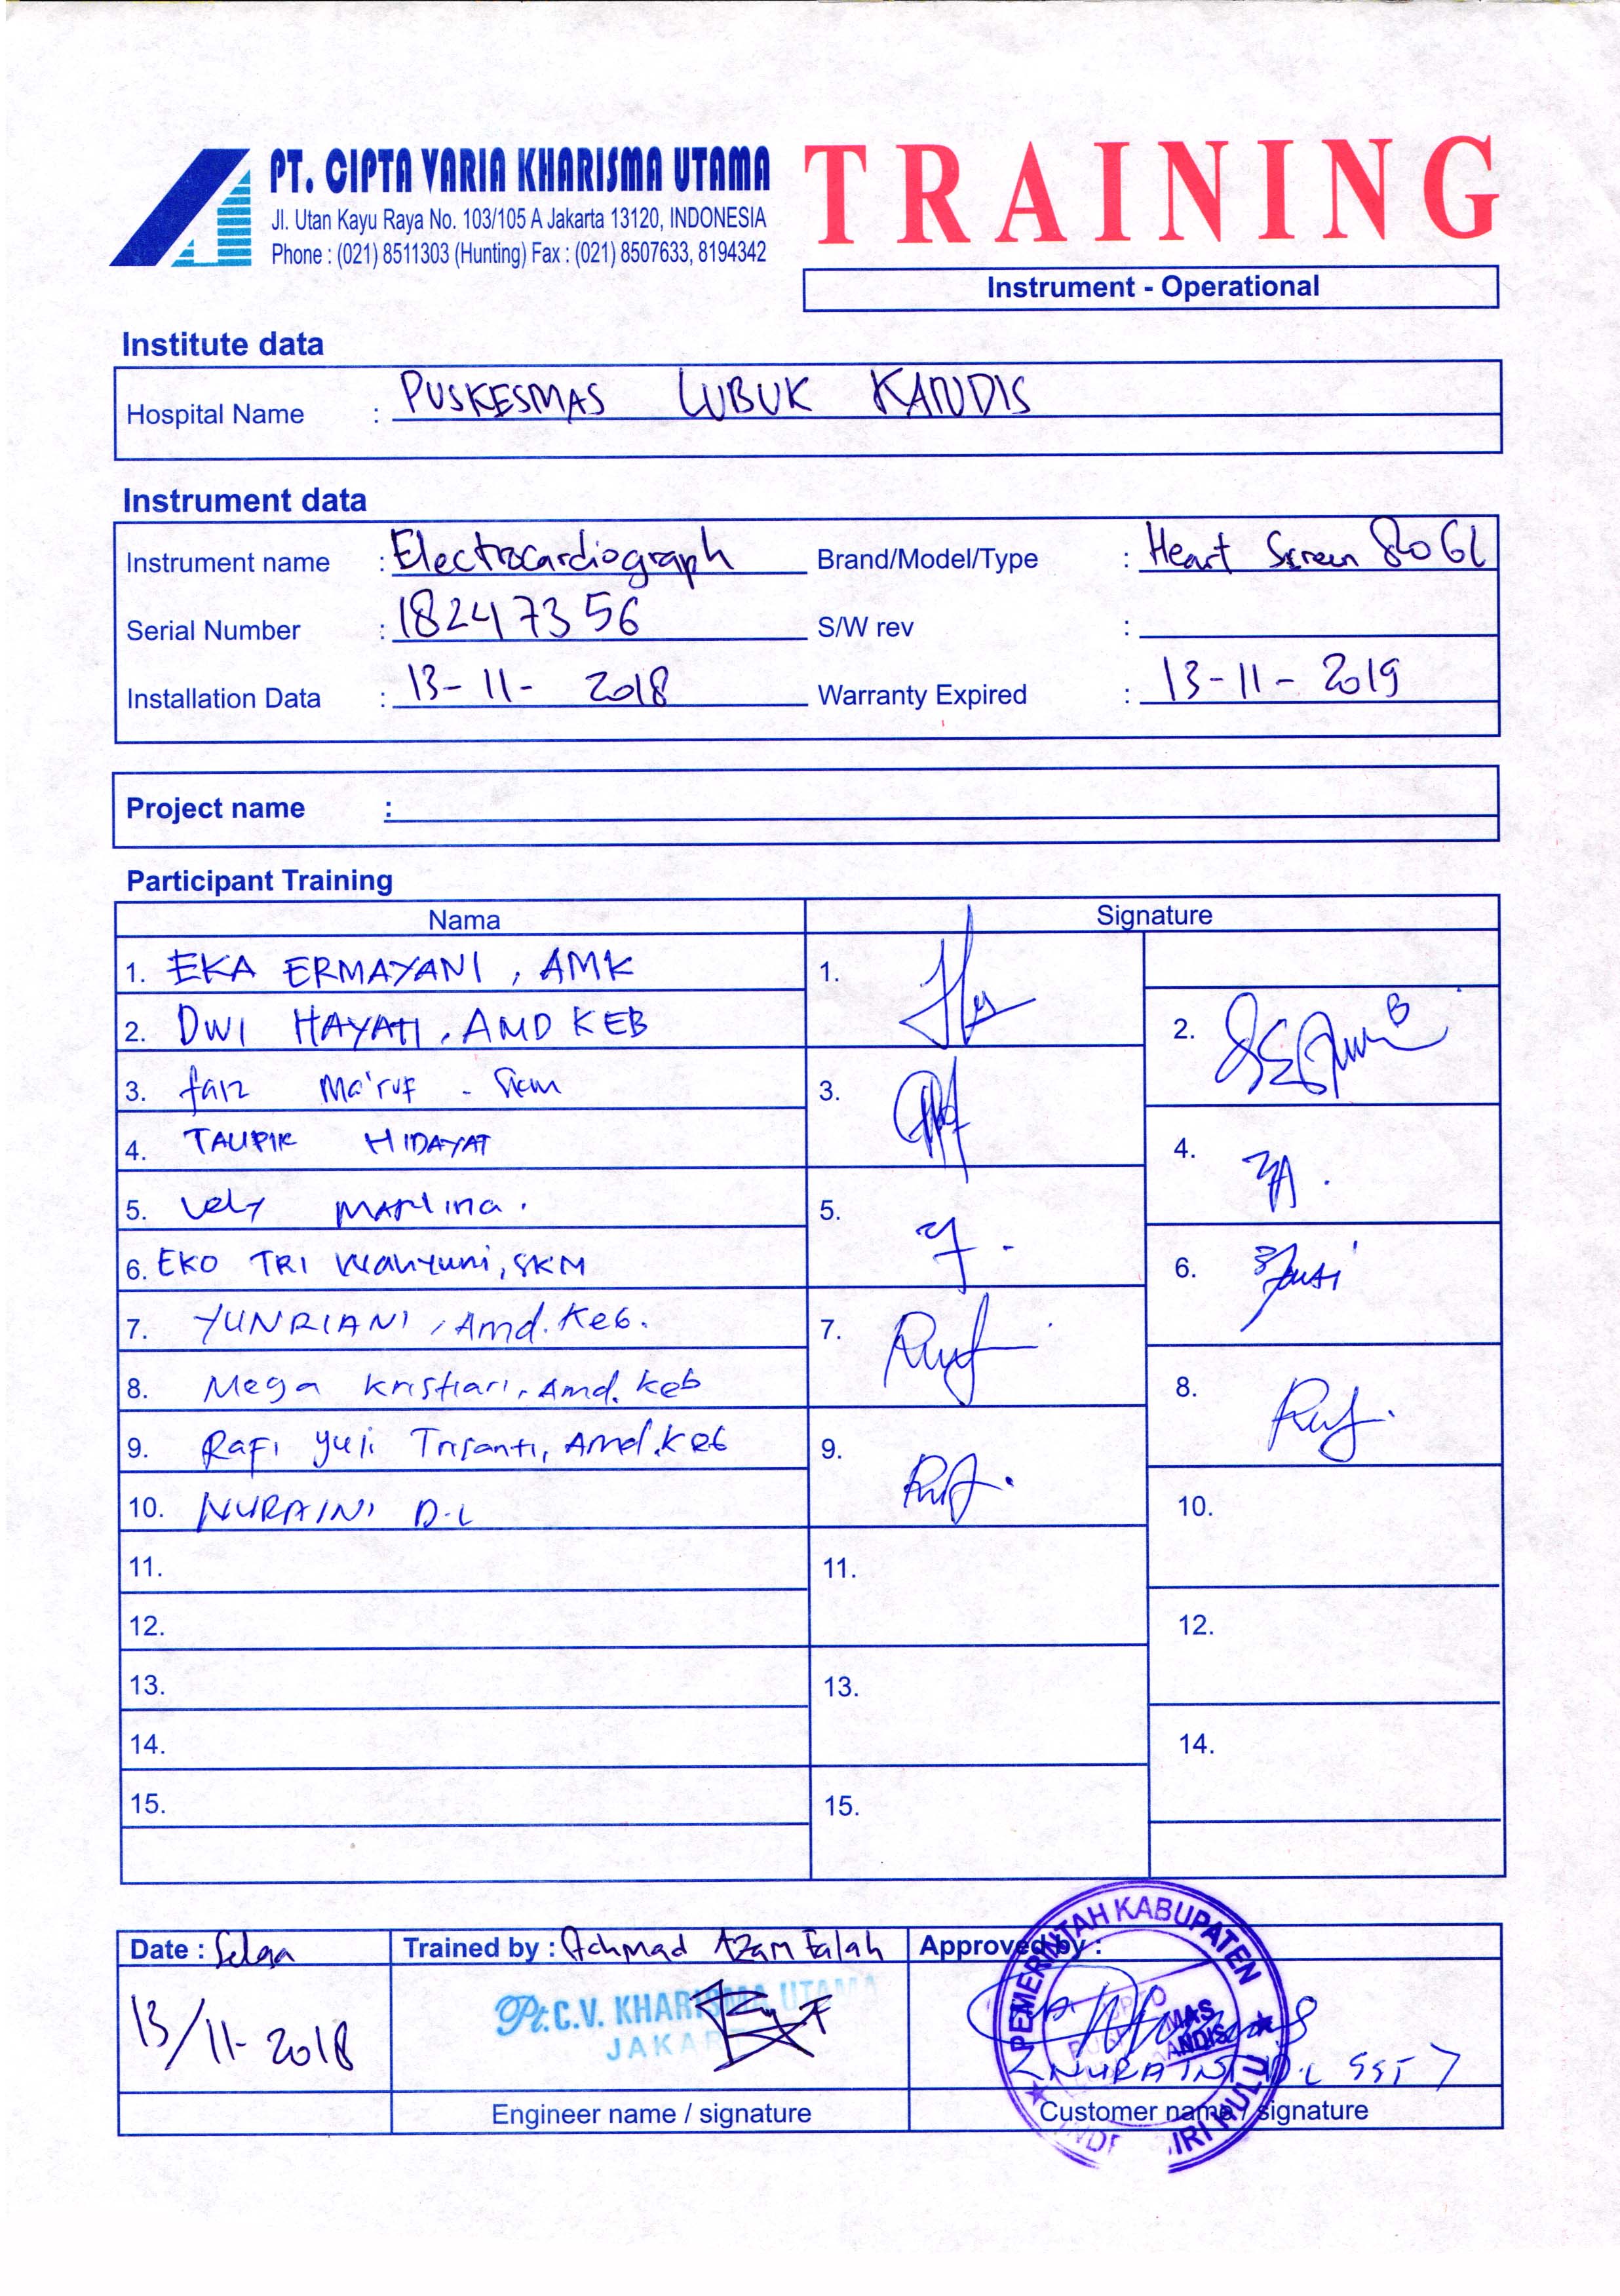 PT. CIPTA VARIA KHARISMA UTAMA
Jl. Utan Kayu Raya No. 103/105 A Jakarta 13120, INDONESIA
Phone : (021) 8511303 (Hunting) Fax : (021) 8507633, 8194342
TRAINING
Instrument - Operational
Institute data
Hospital Name : PUSKESMAS LUBUK KANDIS
Instrument data
Instrument name : Electrocardiograph Brand/Model/Type : Heart Screen
Serial Number : 18247356 S/W rev :
Installation Data : 13-11- 2018 Warranty Expired : 13-11-2019
Project name :
Participant Training
Nama Signature
1. EKA ERMAYANI, AMK 1.
2. DWI HAYATI, AMD KEB 2.
3. faiz Ma'ruf - Skm 3.
4. TAUPIK HIDAYAT 4.
5. MARlina. 5.
6. EKO TRI Wahyuni, SKM 6.
7. YUNRIANI, Amd.Keb. 7.
8. Mega Kristiari, Amd. Keb 8.
9. Rafi Yuli Trisanti, Amd.Keb 9.
10. NURAINI D.L 10.
11. 11.
12. 12.
13. 13.
14. 14.
15. 15.
Date : Trained by : Achmad Azam Falah Approved by :
13/11-2018
Pt. C.V. KHARISMA UTAMA
JAKARTA
PEMERINTAH KABUPATEN
NURAINI D.L SST
Engineer name / signature Customer name / signature